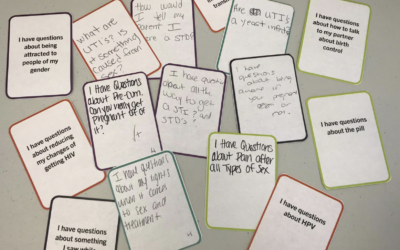 I have questions
about being
attracted to
people of my
gender
what are
UTIs? Is
it something
caused from
sex?
How would
I tell my
parent I
have a STD?
Are UTIs
a yeast infection
I have questions
about how to talk
to my partner
about birth
control
I have questions
about reducing
my changes of
getting HIV
I Have Questions
about Pre-Cum.
Can you really get
Pregnant of of
it?
I have questions
about all the
way to get
STIs? and
STDs?
I have
questions
about being
I have questions
about the pill
I have questions
about something
I saw while
I have questions
about my
when it comes
to sex and
treatment
I Have Questions
about Pain after
all Types of Sex
I have questions
about HPV